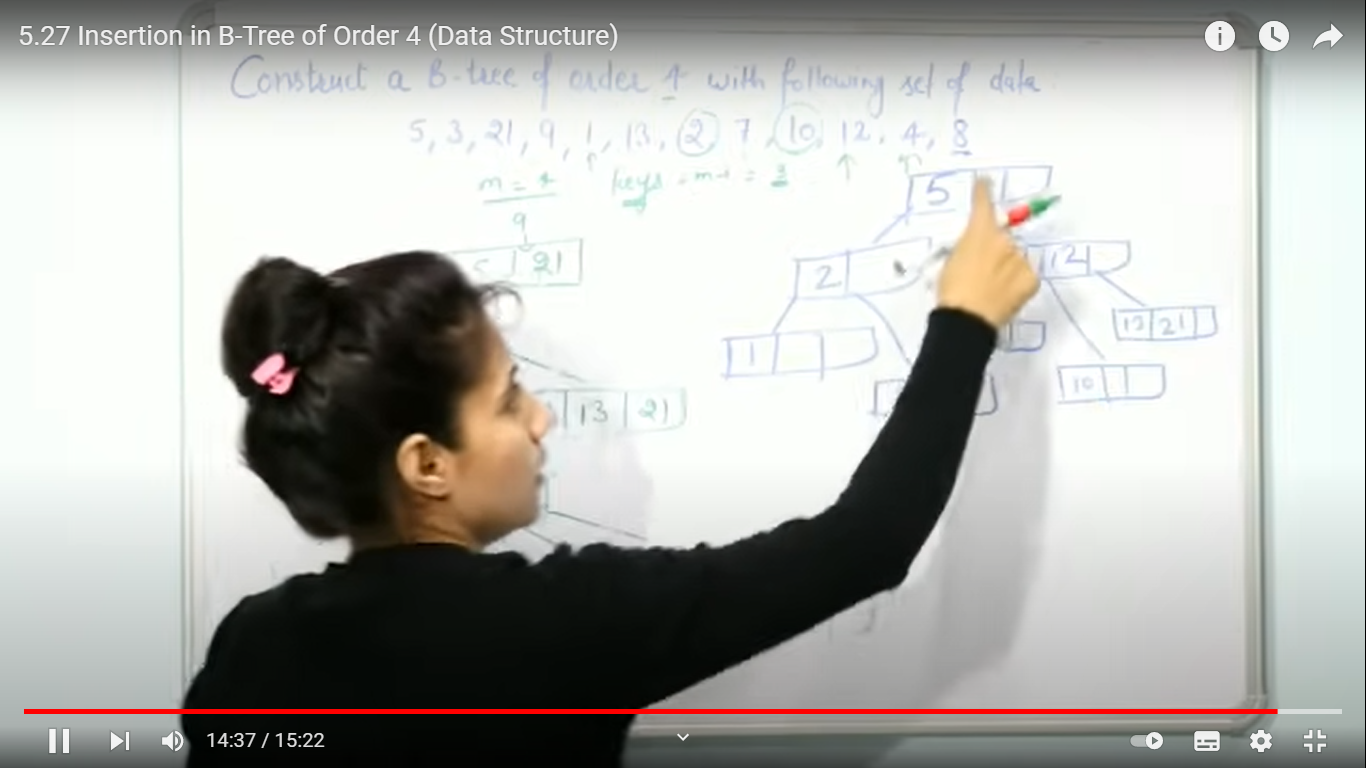 5.27 Insertion in B-Tree of Order 4 (Data Structure)
Construct a B-tree of order 4 with following set of data.
5, 3, 21, 9, 1, 13, 2, 7, 10, 12, 4, 8
m = 4 keys = m-1 = 3
9
5 21
5
2
12
1
13 21
13 21
10
14:37 / 15:22